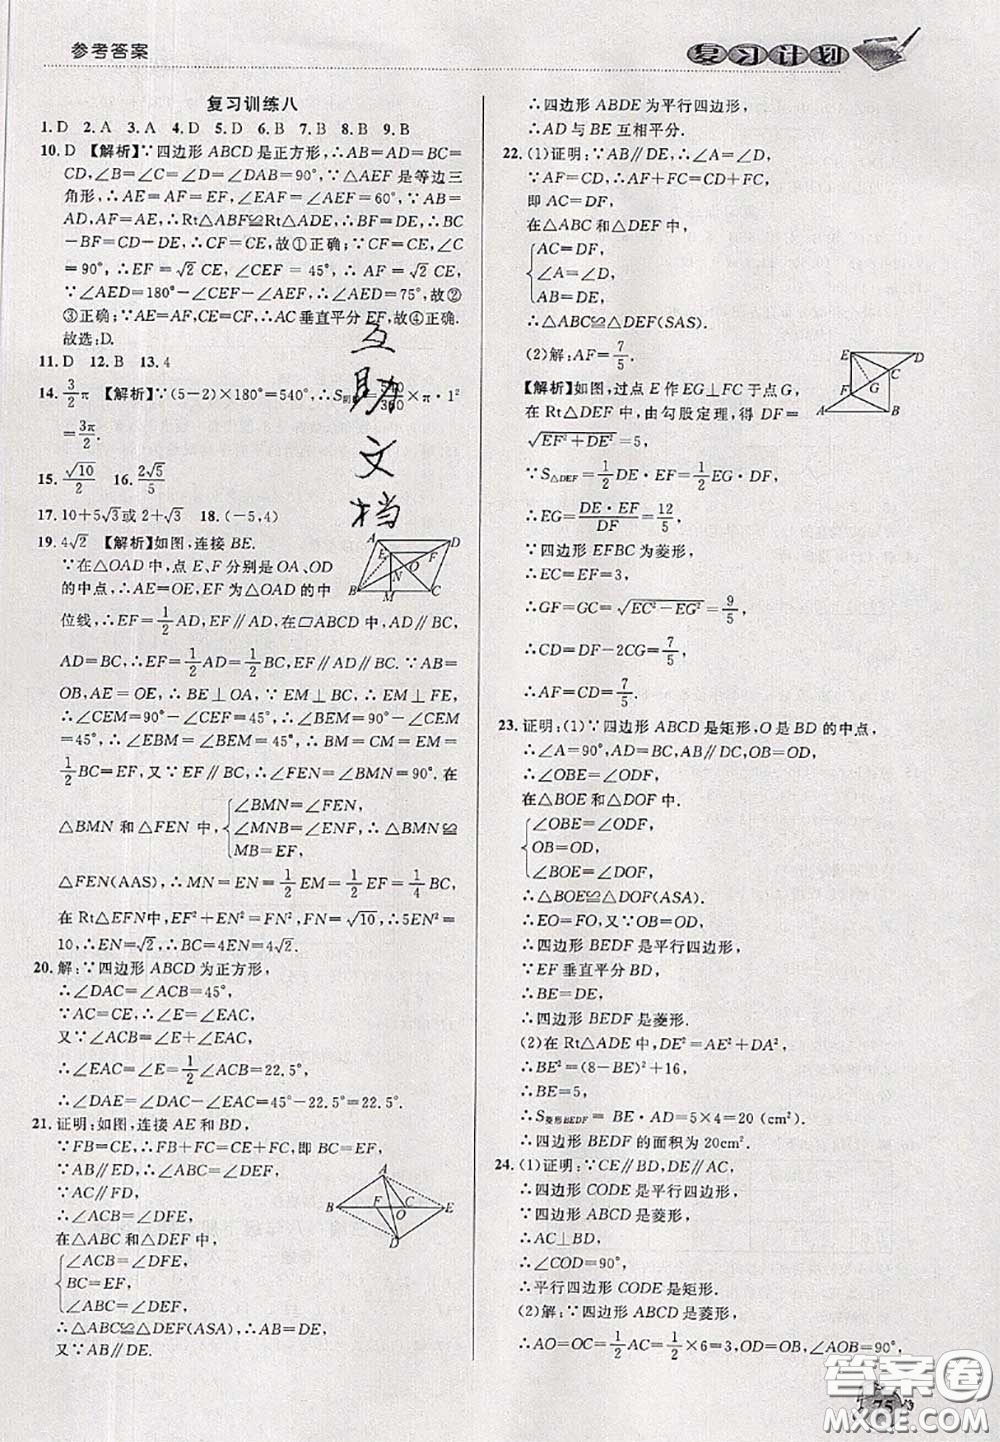 参考答案
复习计划
复习训练八
1. D 2. A 3. A 4. D 5. D 6. B 7. B 8. B 9. B
10. D 【解析】∵四边形 ABCD 是正方形,∴AB=AD=BC=
CD,∠B=∠C=∠D=∠DAB=90°,∵△AEF 是等边三
角形,∴AE=AF=EF,∠EAF=∠AEF=60°,∵AB=
AD,AF=AE,∴Rt△ABF≌Rt△ADE,∴BF=DE,∴BC
-BF=CD-DE,∴CF=CE,故①正确;∵CF=CE,∠C
=90°,∴EF=√2 CE,∠CEF=45°,∴AF=√2 CE,
∵∠AED=180°-∠CEF-∠AEF,∴∠AED=75°,故②
③正确;∵AE=AF,CE=CF,∴AC 垂直平分 EF,故④正确.
故选:D.
11. D 12. B 13. 4
14. 3/2 π 【解析】∵(5-2)×180°=540°,∴S阴影=540/360×π·1²
=3π/2.
15. √10/2 16. 2√5/5
17. 10+5√3或 2+√3 18. (-5,4)
19. 4√2 【解析】如图,连接 BE.
∵在△OAD 中,点 E、F 分别是 OA、OD
的中点,∴AE=OE,EF 为△OAD 的中
位线,∴EF=1/2 AD,EF∥AD,在▱ABCD 中,AD∥BC,
AD=BC,∴EF=1/2 AD=1/2 BC,EF∥AD∥BC.∵AB=
OB,AE=OE,∴BE⊥OA,∵EM⊥BC,∴EM⊥FE,
∴∠CEM=90°-∠CEF=45°,∴∠BEM=90°-∠CEM
=45°,∴∠EBM=∠BEM=45°,∴BM=CM=EM=
1/2 BC=EF,又∵EF∥BC,∴∠FEN=∠BMN=90°. 在
△BMN 和△FEN 中,{∠BMN=∠FEN,
∠MNB=∠ENF,∴△BMN≌
MB=EF,
△FEN(AAS),∴MN=EN=1/2 EM=1/2 EF=1/4 BC,
在 Rt△EFN中,EF²+EN²=FN²,FN=√10,∴5EN²=
10,∴EN=√2,∴BC=4EN=4√2.
20. 解:∵四边形 ABCD 为正方形,
∴∠DAC=∠ACB=45°,
∵AC=CE,∴∠E=∠EAC,
又∵∠ACB=∠E+∠EAC,
∴∠EAC=∠E=1/2∠ACB=22.5°,
∴∠DAE=∠DAC-∠EAC=45°-22.5°=22.5°.
21. 证明:如图,连接 AE 和 BD,
∵FB=CE,∴FB+FC=CE+FC,即 BC=EF,
∵AB∥ED,∴∠ABC=∠DEF,
∵AC∥FD,
∴∠ACB=∠DFE,
在△ABC 和△DEF 中,
{∠ACB=∠DFE,
BC=EF,
∠ABC=∠DEF,
∴△ABC≌△DEF(ASA),∴AB=DE,
又∵AB∥DE.
A D E F O N B M C
A B F C E O D
互助文档
∴四边形 ABDE 为平行四边形,
∴AD 与 BE 互相平分.
22. (1)证明:∵AB∥DE,∴∠A=∠D,
∵AF=CD,∴AF+FC=CD+FC,
即 AC=DF,
在△ABC 和△DEF 中,
{AC=DF,
∠A=∠D,
AB=DE,
∴△ABC≌△DEF(SAS).
(2)解:AF=7/5.
【解析】如图,过点 E 作 EG⊥FC 于点 G,
在 Rt△DEF 中,由勾股定理,得 DF=
√(EF²+DE²)=5,
∵S△DEF=1/2 DE·EF=1/2 EG·DF,
∴EG=DE·EF/DF=12/5,
∵四边形 EFBC 为菱形,
∴EC=EF=3,
∴GF=GC=√(EC²-EG²)=9/5,
∴CD=DF-2CG=7/5,
∴AF=CD=7/5.
E D C F G A B
23. 证明:(1)∵四边形 ABCD 是矩形,O 是 BD 的中点,
∴∠A=90°,AD=BC,AB∥DC,OB=OD,
∴∠OBE=∠ODF,
在△BOE 和△DOF 中.
{∠OBE=∠ODF,
OB=OD,
∠BOE=∠DOF,
∴△BOE≌△DOF(ASA).
∴EO=FO,又∵OB=OD,
∴四边形 BEDF 是平行四边形,
∵EF 垂直平分 BD,
∴BE=DE,
∴四边形 BEDF 是菱形.
(2)在 Rt△ADE 中,DE²=AE²+DA²,
∴BE²=(8-BE)²+16,
∴BE=5,
∴S菱形BEDF=BE·AD=5×4=20 (cm²)
∴四边形 BEDF 的面积为 20cm².
24. (1)证明:∵CE∥BD,DE∥AC,
∴四边形 CODE 是平行四边形,
∵四边形 ABCD 是菱形,
∴AC⊥BD,
∴∠COD=90°,
∴平行四边形 CODE 是矩形,
(2)解:∵四边形 ABCD 是菱形,
∴AO=OC=1/2 AC=1/2×6=3,OD=OB,∠AOB=90°,
75
答案圈
MXQE.COM